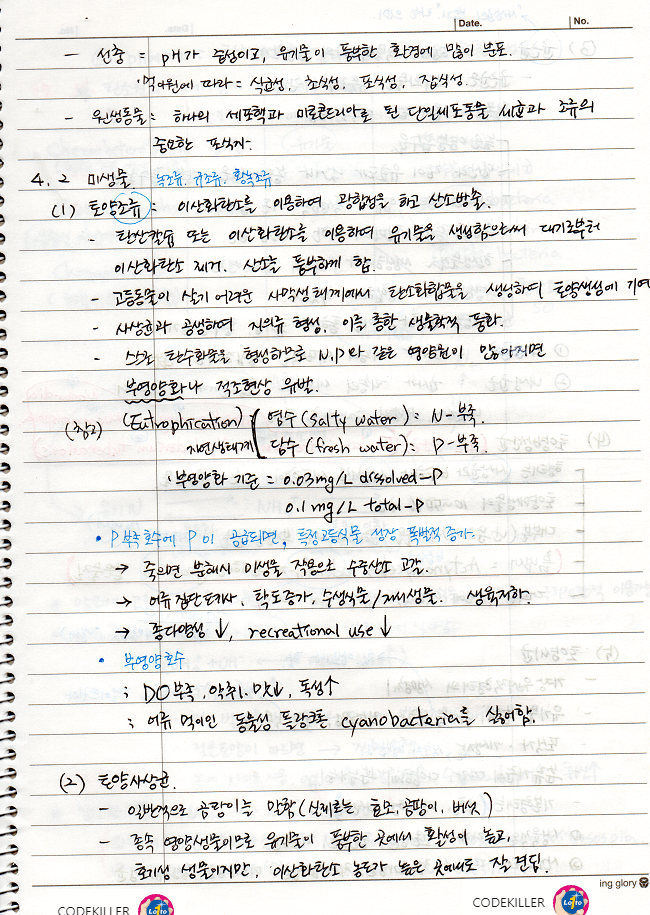 Date.
No.
- 선충 = pH가 중성이고, 유기물이 풍부한 환경에 많이 분포.
먹이원에 따라 = 식균성, 초식성, 포식성, 잡식성.
- 원생동물 = 하나의 세포핵과 미토콘드리아로 된 단일세포동물 세균과 조류의
중요한 포식자.
4.2 미생물 녹조류, 규조류, 황녹조류
(1) 토양조류 : 이산화탄소를 이용하여 광합성을 하고 산소방출.
- 탄산칼슘 또는 이산화탄소를 이용하여 유기물을 생성함으로써 대기로부터
이산화탄소 제거, 산소를 풍부하게 함.
- 고등동물이 살기 어려운 사막생태계에서 탄소화합물을 생성하여 토양생성에 기여
- 사상균과 공생하여 지의류 형성, 이를 통한 생물학적 풍화.
- 스스로 탄수화물을 형성하므로 N,P와 같은 영양원이 많아지면
부영양화나 적조현상 유발.
(참고) (Eutrophication) 염수(salty water) : N-부족.
자연생태계 담수(fresh water) : P-부족.
부영양화 기준 = 0.03mg/L dissolved-P
0.1mg/L total-P
• P부족호수에 P이 공급되면, 특정고등식물 성장 폭발적 증가.
→ 죽으면 분해시 미생물 작용으로 수중산소 고갈.
→ 어류집단폐사, 탁도증가, 수생식물/저서생물. 생육저하.
→ 종다양성 ↓, recreational use ↓
• 부영양호수
; DO부족, 악취, 맛↓, 독성↑
; 어류 먹이인 동물성 플랑크톤 cyanobacteria를 싫어함.
(2) 토양사상균.
- 일반적으로 곰팡이를 말함(실제로는 효모, 곰팡이, 버섯)
- 종속 영양생물이므로 유기물이 풍부한 곳에서 활성이 높고,
호기성 생물이지만, 이산화탄소 농도가 높은 곳에서도 잘 견딤.
ing glory
CODEKILLER Lotto
CODEKILLER Lotto